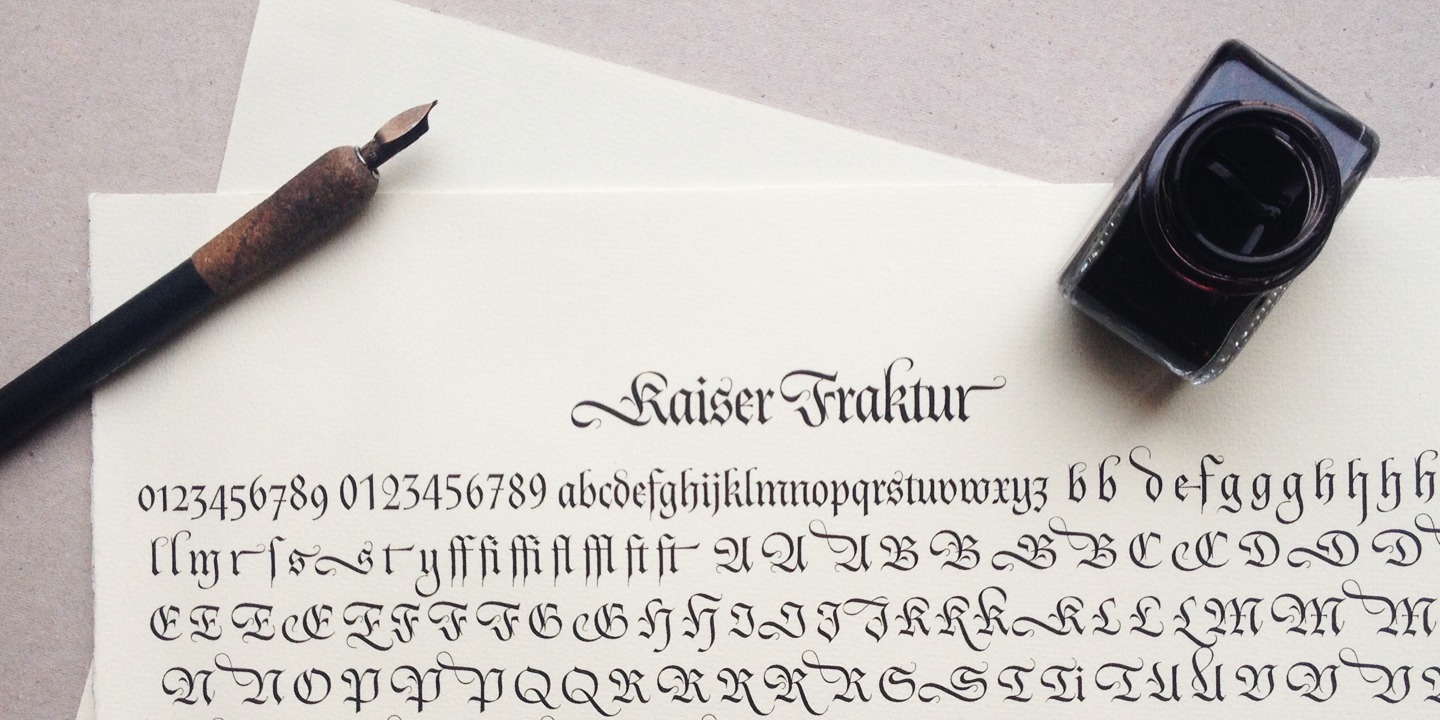 Kaiser Fraktur
0123456789 0123456789 abcdefghijklmnopqrstuvwxyz b b d e f g g g h h h h
l l m r ſ s s t y ff fi ffi fl ffl ſt ſt A A A B B B B C C D D D
E E E E E F F F G G H H I I J J K K K K L L L M M M
N N O P P P Q Q R R R R R S S T Ti T U U V V V